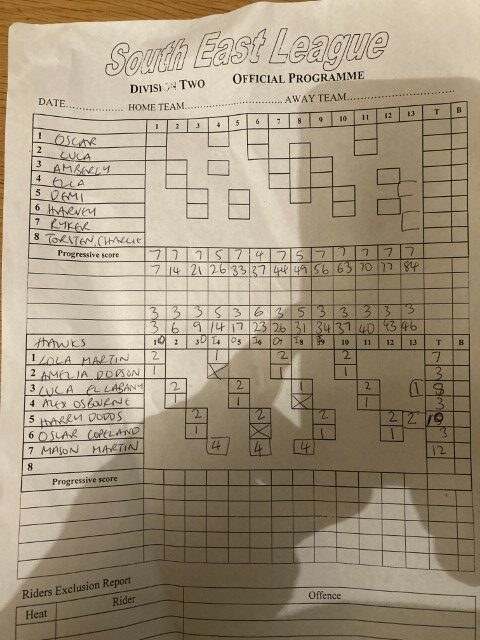 South East League
DIVISION TWO OFFICIAL PROGRAMME
DATE HOME TEAM AWAY TEAM
1 2 3 4 5 6 7 8 9 10 11 12 13 T B
1 OSCAR
2 LULA
3 AMBERLY
4 ELLA
5 DEMI
6 HARVEY
7 RYKER
8 TORSTEN, CHARLIE
Progressive score 7 7 7 5 7 4 7 5 7 7 7 7 7
7 14 21 26 33 37 44 49 56 63 70 77 84
3 3 3 5 3 6 3 5 3 3 3 3 3
3 6 9 14 17 23 26 31 34 37 40 43 46
HAWKS 1 2 3 4 5 6 7 8 9 10 11 12 13 T B
1 LOLA MARTIN 2 1 2 2 7
2 AMELIA DODSON 1 X 1 1 3
3 LULA 2 2 1 2 1 8
4 ALEX OSBOURNE 1 1 X 1 3
5 HARRY DODDS 2 2 2 2 2 10
6 OSCAR COPELAND 1 X 1 1 3
7 MASON MARTIN 4 4 4 12
8
Progressive score
Riders Exclusion Report
Heat Rider Offence